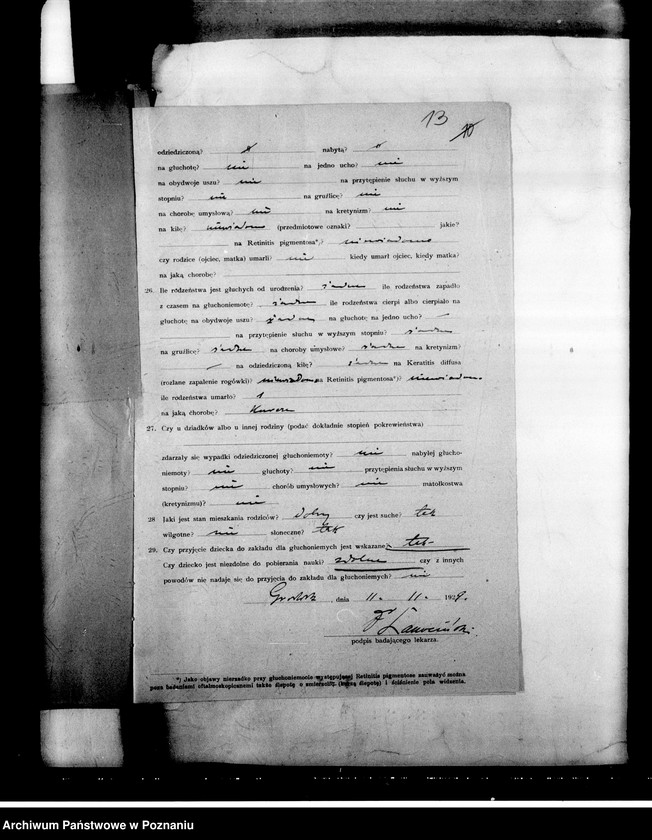 13
odziedziczoną? nabytą?
na głuchotę? nie na jedno ucho? nie
na obydwoje uszu? nie na przytępienie słuchu w wyższym
stopniu? nie na gruźlicę? nie
na chorobę umysłową? nie na kretynizm? nie
na kiłę? niewiadomo (przedmiotowe oznaki? jakie?
na Retinitis pigmentosa*)? niewiadomo
czy rodzice (ojciec, matka) umarli? nie kiedy umarł ojciec, kiedy matka?
na jaką chorobę?
26. Ile rodzeństwa jest głuchych od urodzenia? żadne ile rodzeństwa zapadło
z czasem na głuchoniemotę? żadne ile rodzeństwa cierpi albo cierpiało na
głuchotę na obydwoje uszu? żadne na głuchotę na jedno ucho? —
na przytępienie słuchu w wyższym stopniu? żadne
na gruźlicę? żadne na choroby umysłowe? żadne na kretynizm?
— na odziedziczoną kiłę? żadne na Keratitis diffusa
(rozlane zapalenie rogówki)? niewiadomo na Retinitis pigmentosa*)? niewiadomo
ile rodzeństwa umarło? 1
na jaką chorobę?
27. Czy u dziadków albo u innej rodziny (podać dokładnie stopień pokrewieństwa)
zdarzały się wypadki odziedziczonej głuchoniemoty? nie nabytej głucho-
niemoty? nie głuchoty? nie przytępienia słuchu w wyższym
stopniu? nie chorób umysłowych? nie matołkostwa
(kretynizmu)? nie
28 Jaki jest stan mieszkania rodziców? dobry czy jest suche? tak
wilgotne? nie słoneczne? tak
29. Czy przyjęcie dziecka do zakładu dla głuchoniemych jest wskazane? tak
Czy dziecko jest niezdolne do pobierania nauki? zdolne czy z innych
powodów nie nadaje się do przyjęcia do zakładu dla głuchoniemych? nie
dnia 11. 11. 1929.
podpis badającego lekarza.
*) Jako objaw nierzadko przy głuchoniemocie występującej Retinitis pigmentose zauważyć można
poza badaniami oftalmoskopicznemi także ślepotę o zmierzchu (kurzą ślepotę) i ścieśnienie pola widzenia.
Archiwum Państwowe w Poznaniu